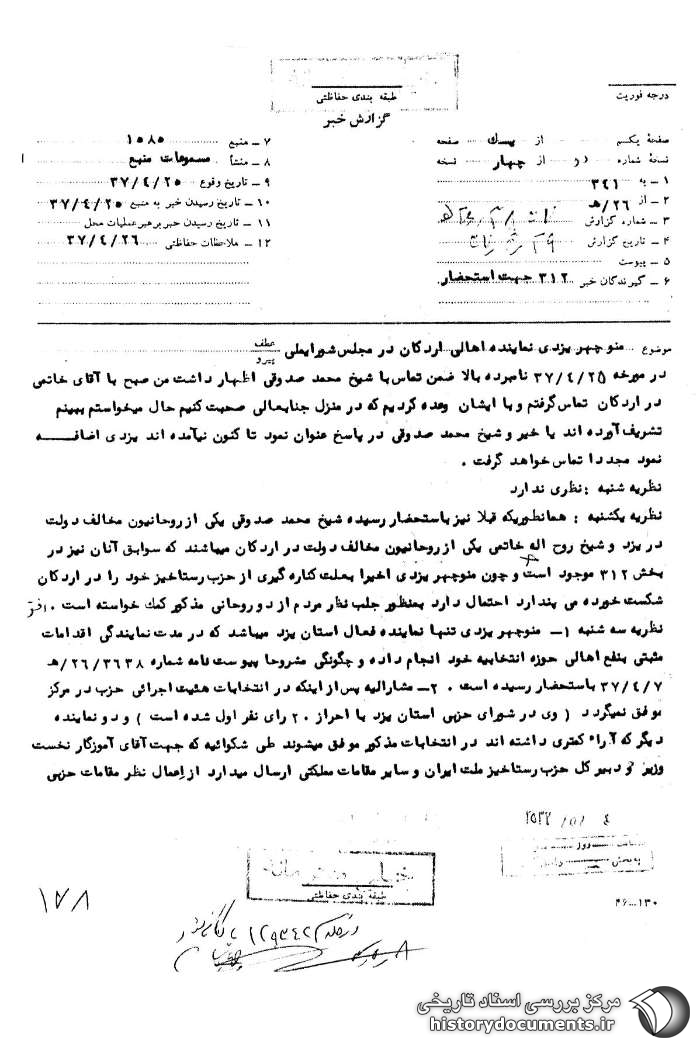 درجه فوریت
طبقه بندی حفاظتی
گزارش خبر
صفحهٔ یکم از یک صفحه
نسخهٔ شماره دو از چهار نسخه
۱ ـ به ۳۴۱
۲ ـ از ۲۶/هـ
۳ ـ شماره گزارش
۴ ـ تاریخ گزارش
۵ ـ پیوست
۶ ـ گیرندگان خبر ۳۱۲ جهت استحضار
۷ ـ منبع ۱۰۸۵
۸ ـ منشأ مسموعات منبع
۹ ـ تاریخ وقوع ۳۷/۴/۲۵
۱۰ ـ تاریخ رسیدن خبر به منبع ۳۷/۴/۲۵
۱۱ ـ تاریخ رسیدن خبر برهبر عملیات محل
۱۲ ـ ملاحظات حفاظتی ۳۷/۴/۲۶
موضوع منوچهر یزدی نماینده اهالی اردکان در مجلس شورایملی عطف پیرو
در مورخه ۳۷/۴/۲۵ نامبرده بالا ضمن تماس با شیخ محمد صدوقی اظهار داشت من صبح با آقای خاتمی
در اردکان تماس گرفتم و با ایشان وعده کردیم که در منزل جنابعالی صحبت کنیم حال میخواستم ببینم
تشریف آورده اند یا خیر و شیخ محمد صدوقی در پاسخ عنوان نمود تا کنون نیآمده اند یزدی اضافـــه
نمود مجددا تماس خواهد گرفت .
نظریه شنبه : نظری ندارد
نظریه یکشنبه : همانطوریکه قبلا نیز باستحضار رسیده شیخ محمد صدوقی یکی از روحانیون مخالف دولت
در یزد و شیخ روح اله خاتمی یکی از روحانیون مخالف دولت در اردکان میباشند که سوابق آنان نیز در
بخش ۳۱۲ موجود است و چون منوچهر یزدی اخیرا بعلت کناره گیری از حزب رستاخیز خود را در اردکان
شکست خورده می پندارد احتمال دارد بمنظور جلب نظر مردم از دو روحانی مذکور کمک خواسته است .
نظریه سه شنبه ۱ـ منوچهر یزدی تنها نماینده فعال استان یزد میباشد که در مدت نمایندگی اقدامات
مثبتی بنفع اهالی حوزه انتخابیه خود انجام داده و چگونگی مشروحا پیوست نامه شماره ۳۶۳۸/۲۶هـ
۳۷/۴/۷ باستحضار رسیده است . ۲ـ مشارالیه پس از اینکه در انتخابات هئیت اجرائی حزب در مرکز
موفق نمیگردد ( وی در شورای حزبی استان یزد با احراز ۲۰ رای نفر اول شده است ) و دو نماینده
دیگر که آراء کمتری داشته اند در انتخابات مذکور موفق میشوند طی شکوائیه که جهت آقای آموزگار نخست
وزیر و دبیر کل حزب رستاخیز ملت ایران و سایر مقامات مملکتی ارسال میدارد از اعمال نظر مقامات حزبی
۴ /۵/ ۲۵۳۷
خیلی محرمانه
طبقه بندی حفاظتی
۱۷۸
۴۶ـ۱۳۰
مرکز بررسی اسناد تاریخی
historydocuments.ir